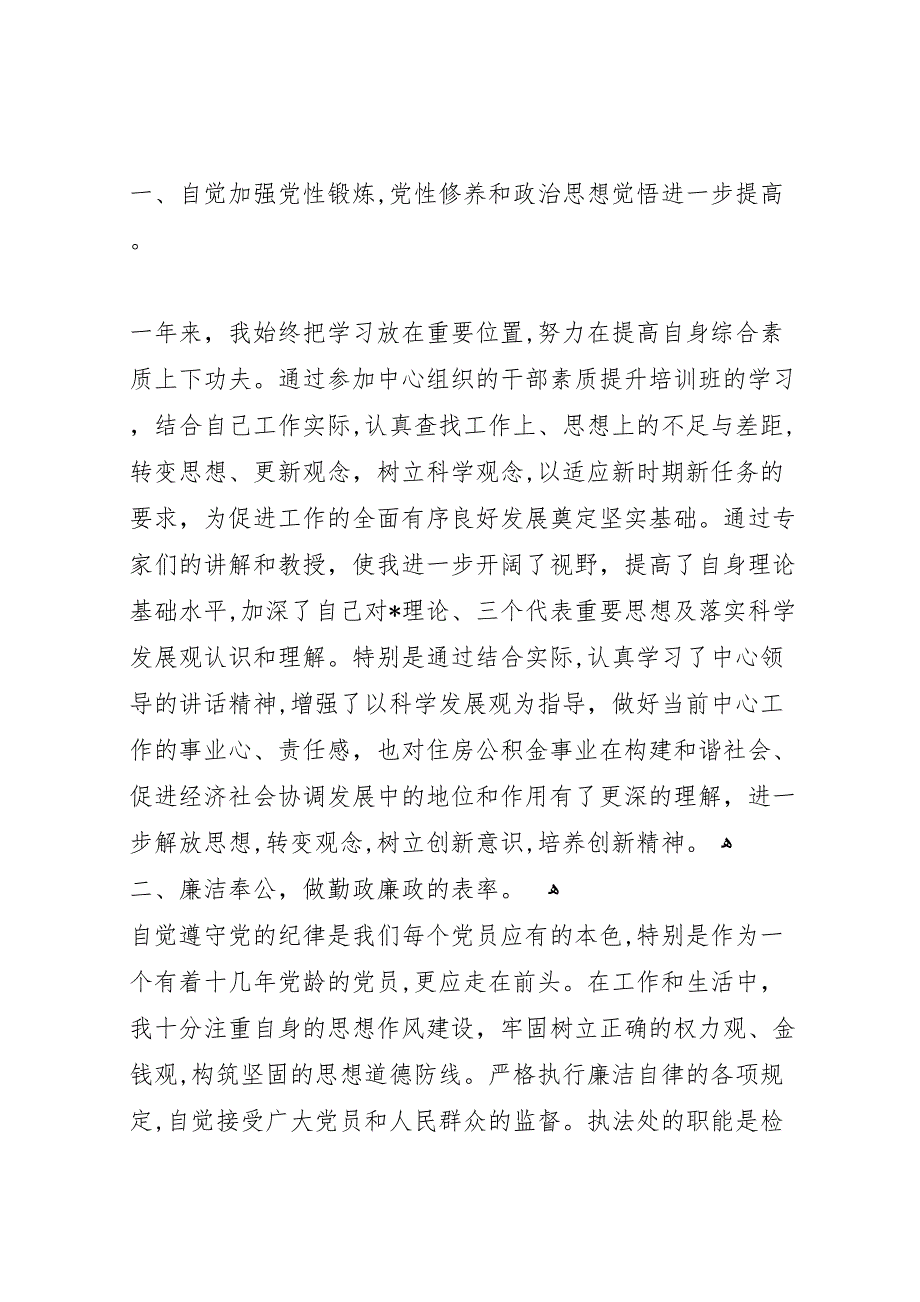 一、自觉加强党性锻炼,党性修养和政治思想觉悟进一步提高
。
一年来，我始终把学习放在重要位置,努力在提高自身综合素
质上下功夫。通过参加中心组织的干部素质提升培训班的学习
，结合自己工作实际,认真查找工作上、思想上的不足与差距,
转变思想、更新观念，树立科学观念,以适应新时期新任务的
要求，为促进工作的全面有序良好发展奠定坚实基础。通过专
家们的讲解和教授，使我进一步开阔了视野，提高了自身理论
基础水平,加深了自己对*理论、三个代表重要思想及落实科学
发展观认识和理解。特别是通过结合实际,认真学习了中心领
导的讲话精神,增强了以科学发展观为指导，做好当前中心工
作的事业心、责任感，也对住房公积金事业在构建和谐社会、
促进经济社会协调发展中的地位和作用有了更深的理解，进一
步解放思想,转变观念,树立创新意识,培养创新精神。 ﻫ
二、廉洁奉公，做勤政廉政的表率。 ﻫ
自觉遵守党的纪律是我们每个党员应有的本色,特别是作为一
个有着十几年党龄的党员,更应走在前头。在工作和生活中，
我十分注重自身的思想作风建设，牢固树立正确的权力观、金
钱观,构筑坚固的思想道德防线。严格执行廉洁自律的各项规
定,自觉接受广大党员和人民群众的监督。执法处的职能是检